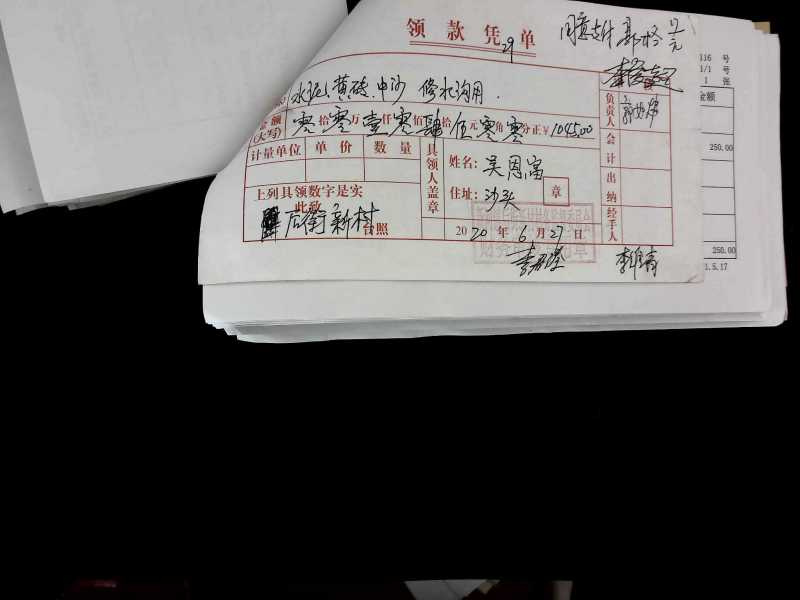 领款凭单
29
同意支付
水泥、黄砖、中沙 修水沟用.
额 零拾零万壹仟零佰肆拾伍元零角零分正¥1045.00
(大写)
计量单位 单价 数量
具领人盖章
姓名:吴因富
住址:沙头 章
上列具领数字是实
此致
后街新村 台照
2020年6月27日
负责人
会计
出纳
经手人
116 号
1/1 号
1 张
金额
250.00
250.00
1.5.17